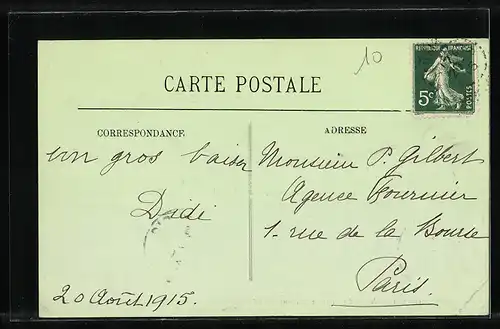 10
REPUBLIQUE FRANCAISE
5c
POSTES
CARTE POSTALE
CORRESPONDANCE
ADRESSE
un gros baiser
Didi
20 Août 1915.
Monsieur P. Gilbert
Agence Fournier
1. rue de la Bourse
Paris.